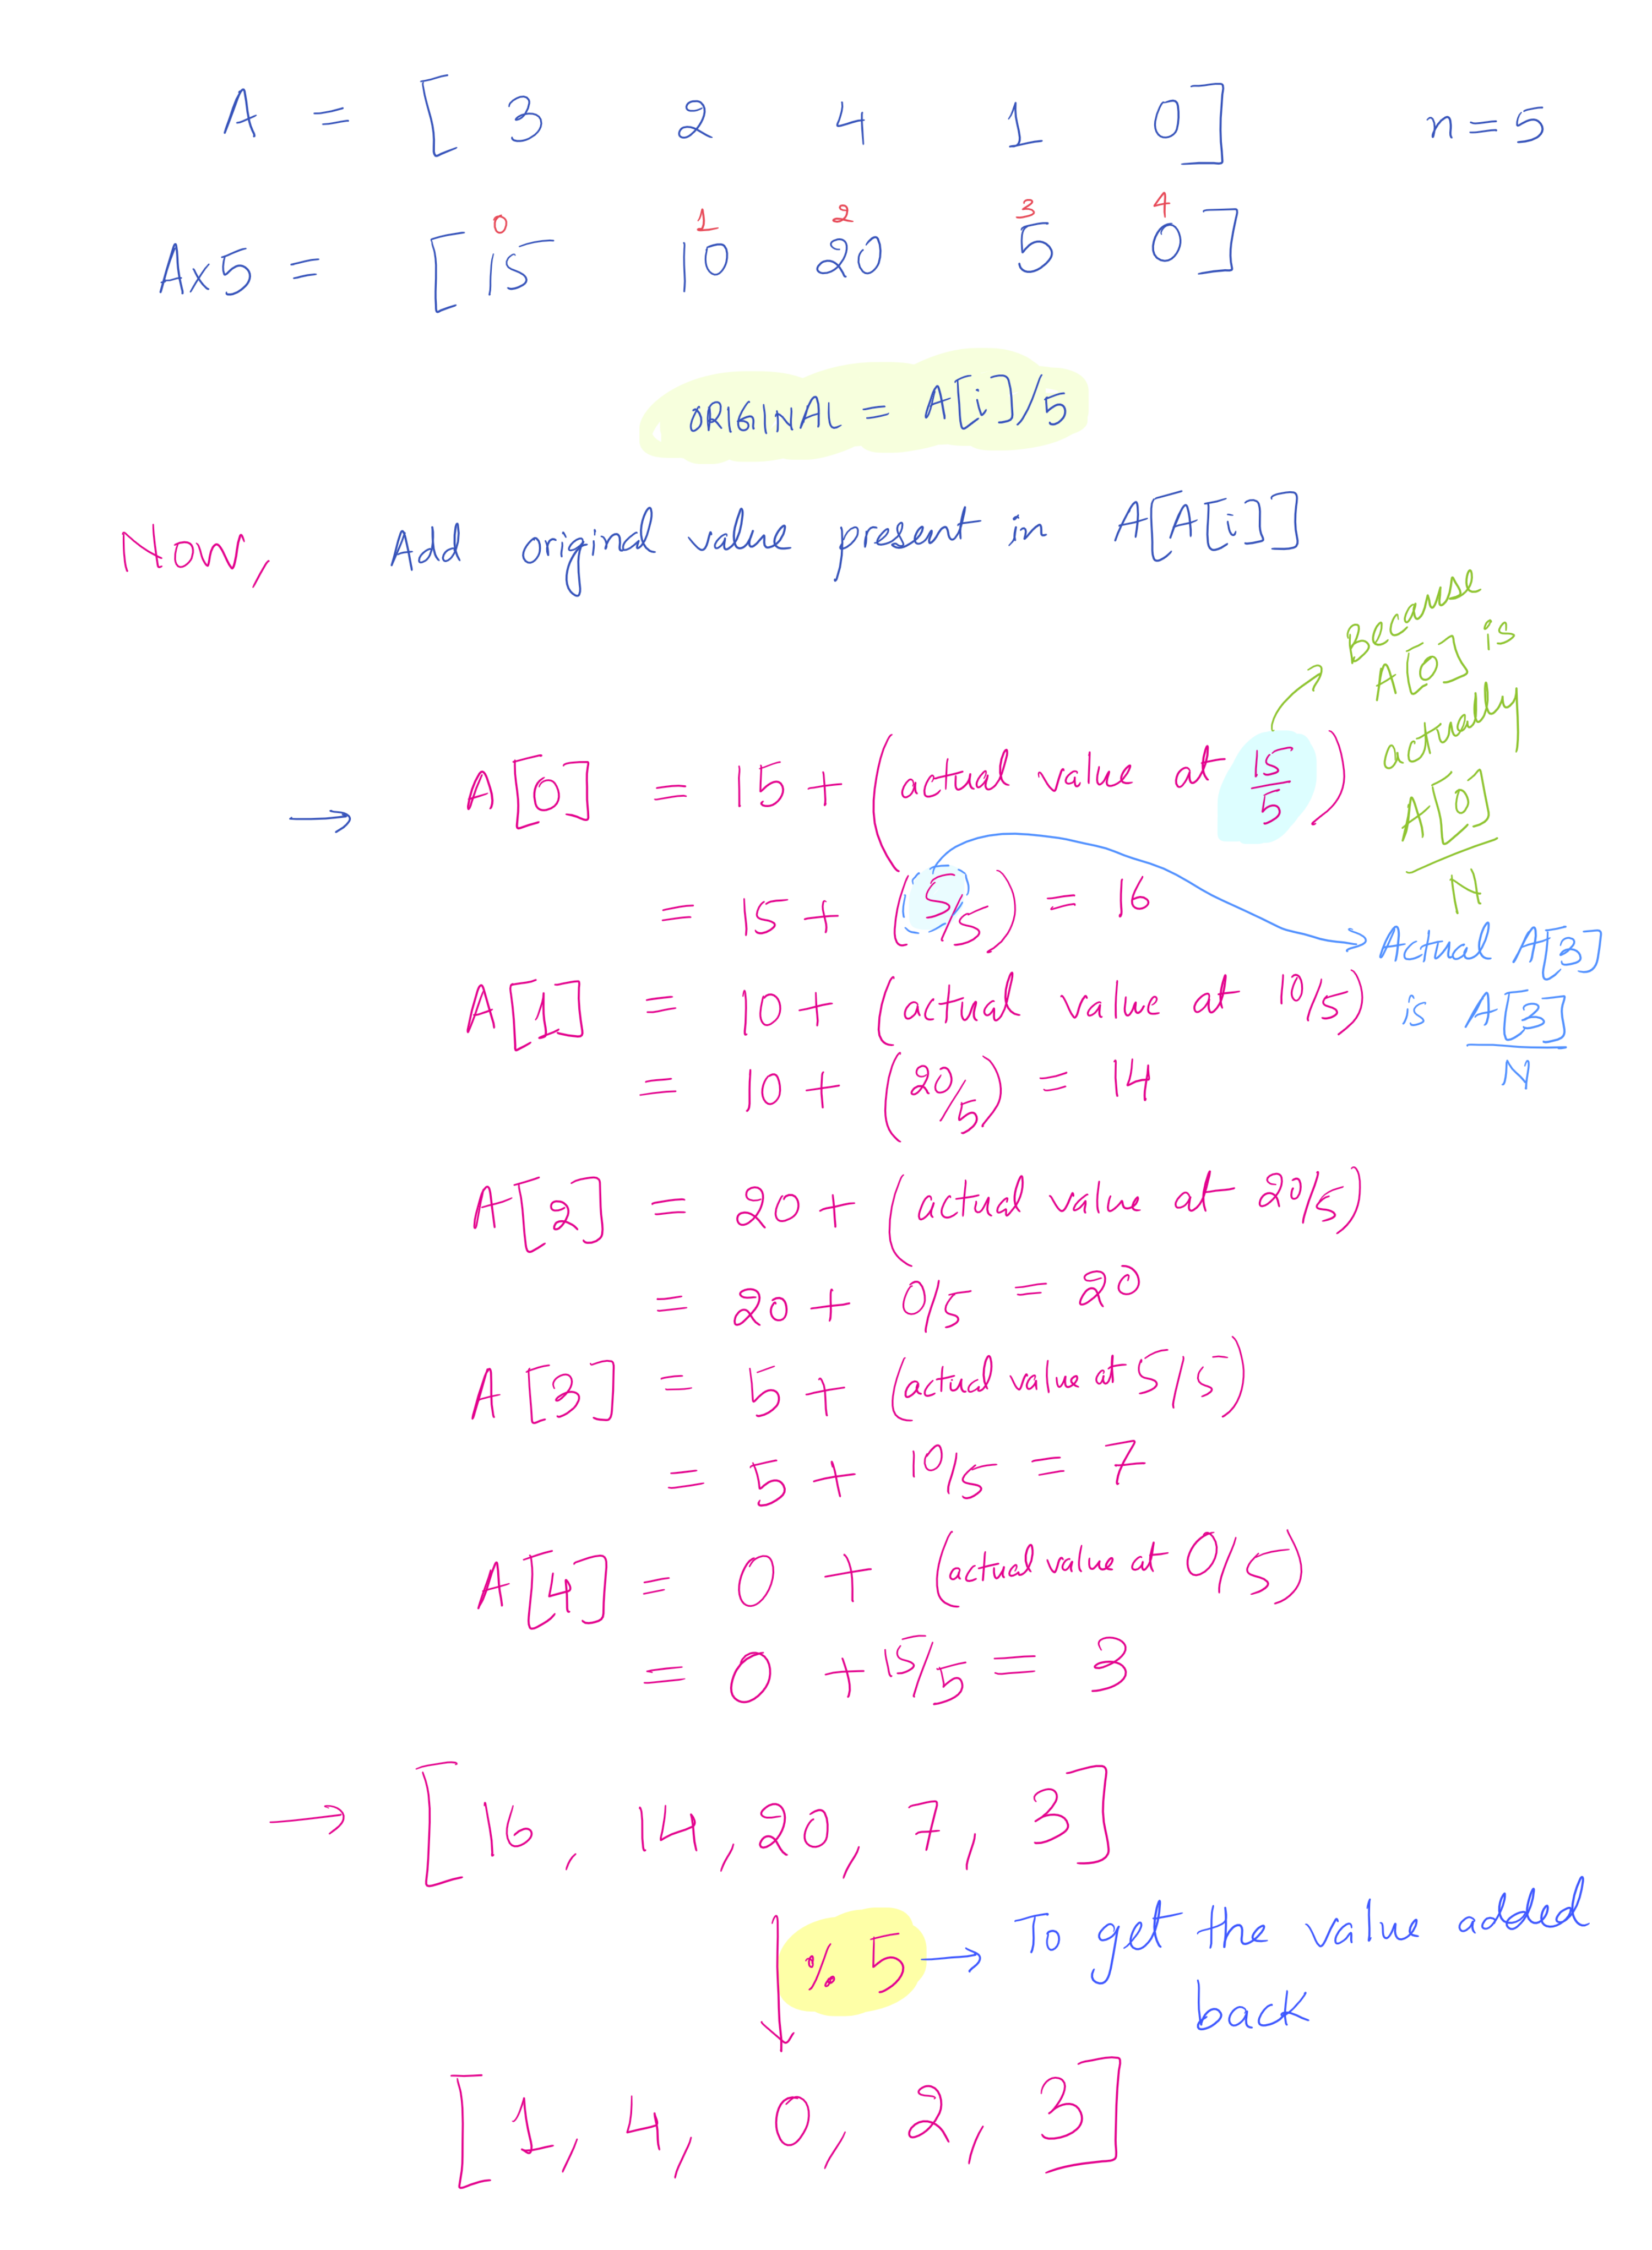 A = [ 3 2 4 1 0 ] n = 5
0 1 2 3 4
Ax5 = [ 15 10 20 5 0 ]
ORIGINAL = A[i]/5
Now, Add original value present in A[A[i]]
Because
A[0] is
actually
A[0]
N
→ A[0] = 15 + (actual value at 15/5)
= 15 + (5/5) = 16
Actual A[3]
is A[3]
N
A[1] = 10 + (actual value at 10/5)
= 10 + (20/5) = 14
A[2] = 20 + (actual value at 20/5)
= 20 + 0/5 = 20
A[3] = 5 + (actual value at 5/5)
= 5 + 10/5 = 7
A[4] = 0 + (actual value at 0/5)
= 0 + 15/5 = 3
→ [16, 14, 20, 7, 3]
% 5 → To get the value added
back
[1, 4, 0, 2, 3]